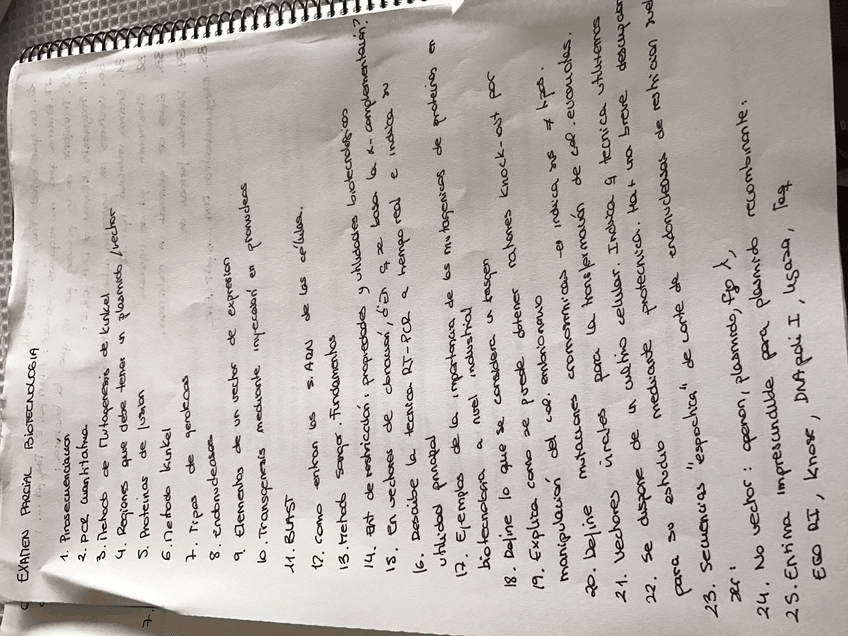 EXAMEN PARCIAL BIOTECNOLOGIA
1. Pirosecuenciacion
2. PCR cuantitativa
3. Metodo de Mutagenesis de Kunkel
4. Regiones que debe tener un plasmido/vector
5. Proteinas de fusion
6. Metodo Kunkel
7. Tipos de genotecas
8. Endonucleasas
9. Elementos de un vector de expresion
10. Transgenesis mediante inyección en pronucleos
11. BLAST
12. Como entran los siARN de las células.
13. Metodo Sanger. Fundamentos
14. de restricción: propiedades y utilidades biotecnologicas
15. En vectores de clonación, ¿En q se basa la α-complementación?
16. Describe la tecnica RT-PCR a tiempo real e indica su
utilidad principal
17. Ejemplos de la importancia de la mutagenesis de proteinas en
biotecnologia a nivel industrial
18. Define lo que se considera un
19. Explica como se puede obtener ratones knock-out por
manipulación del cel. embrionario
20. Define mutaciones cromosomicas e indica sus tipos.
21. Vectores virales para la transformación de cel. eucariotas.
22. Se dispone de un cultivo celular. Indica q tecnica utilizarias
para su estudio mediante proteomica. Haz una breve descripcion
23. Secuencias "especifica" de corte de endonucleasas de restricion
ser:
24. No vector: operon, plasmido, fago λ,
25. Enzima imprescindible para plasmido recombinante:
ECO RI, kinasa, DNA poli I, ligasa, Taq
7.